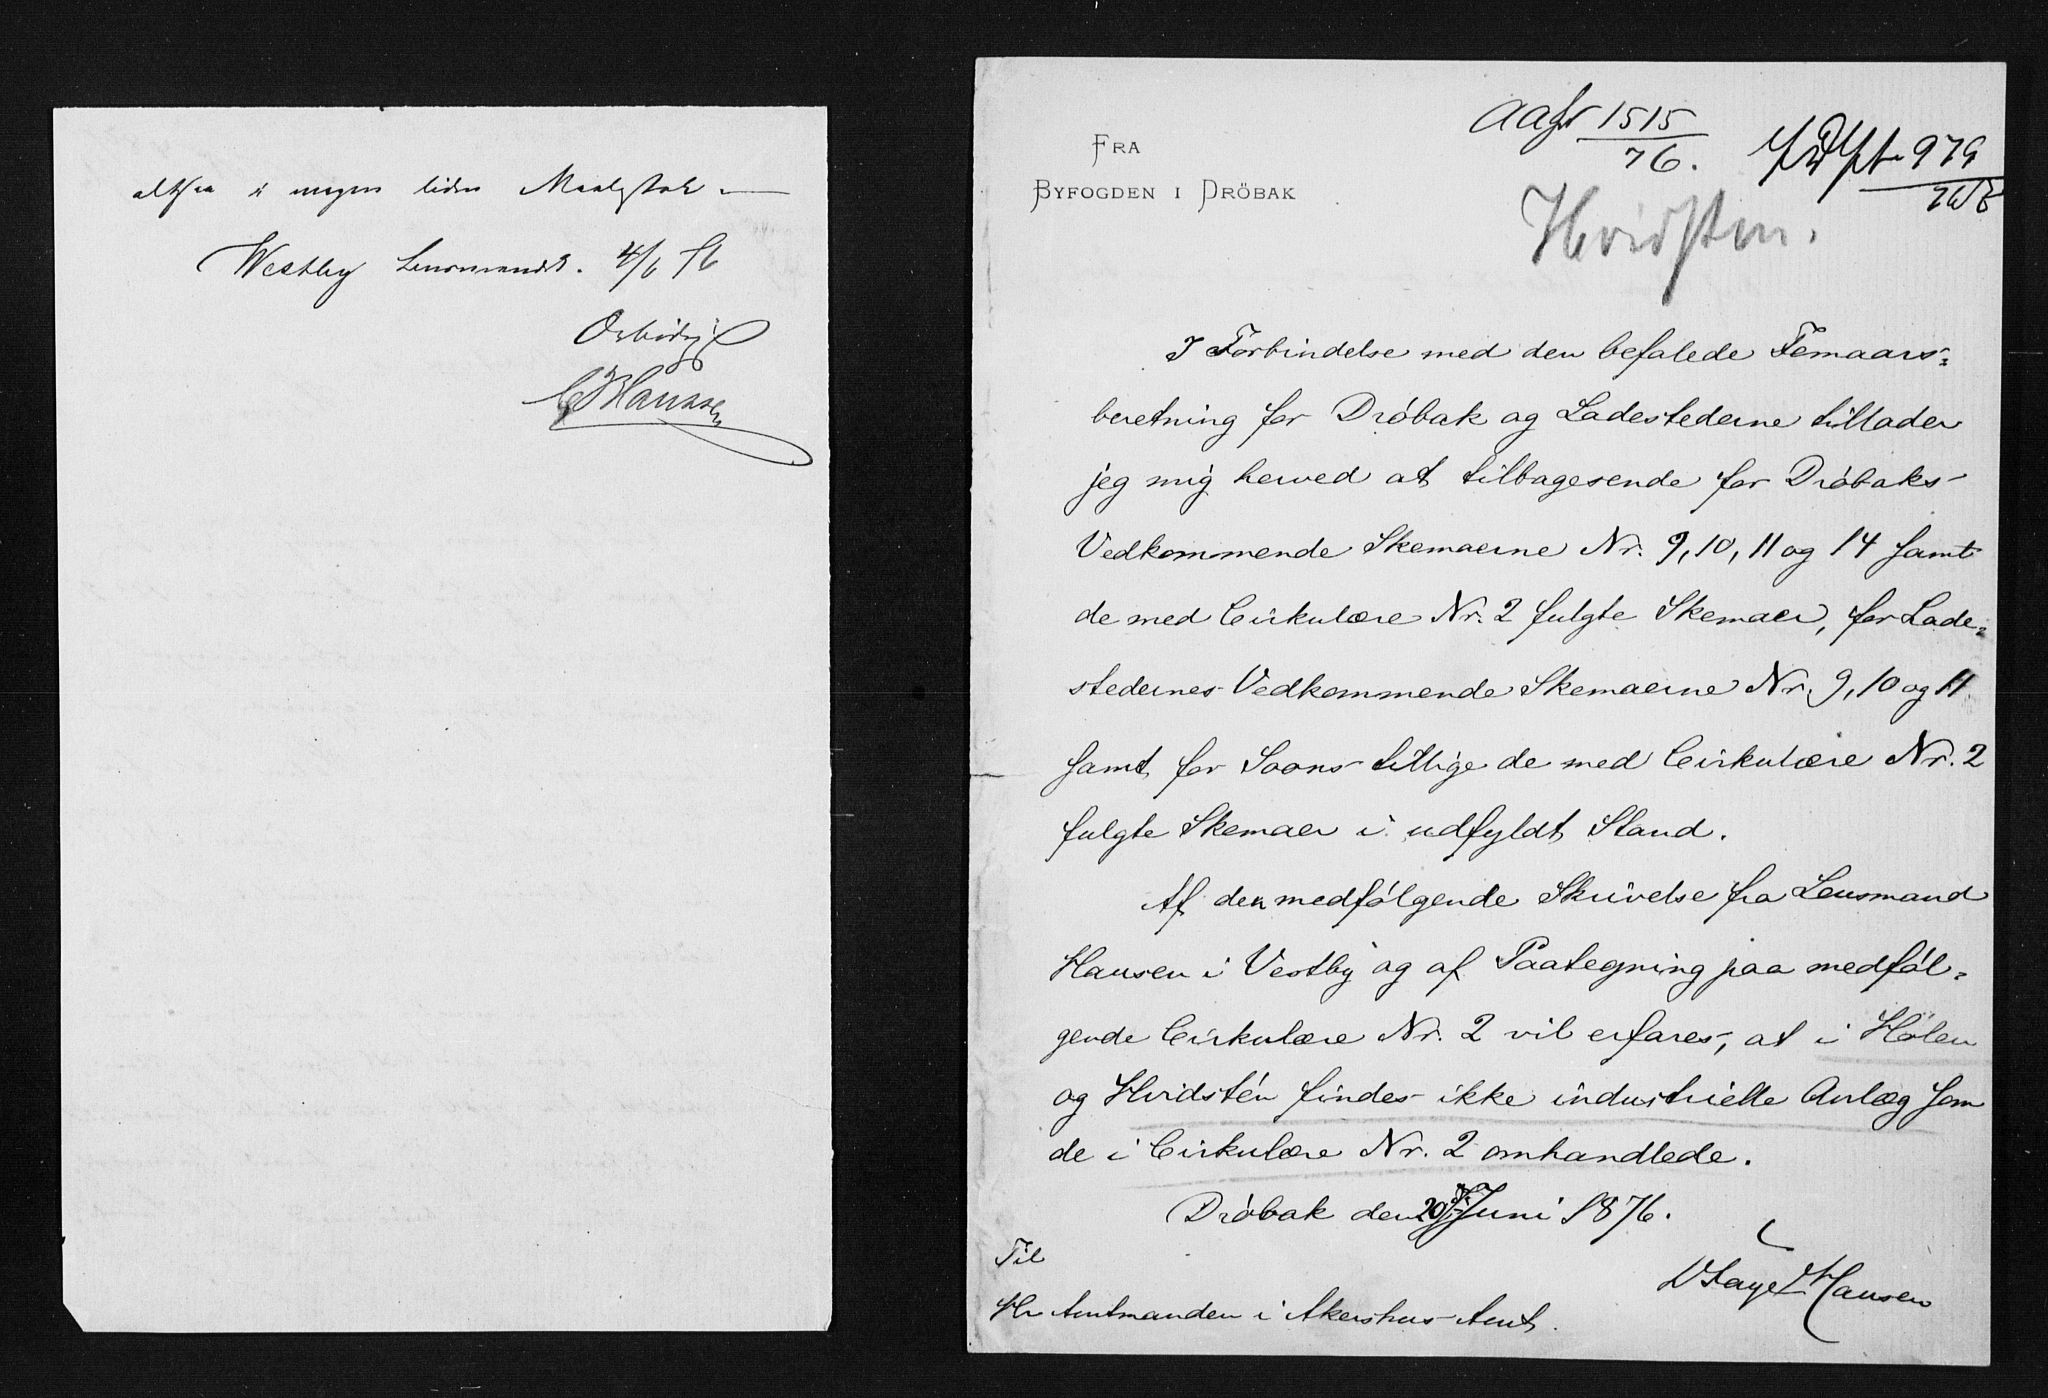 altsaa i megen liden Maalestok —
Westby Lensmandsb. 4/6 76
Ærbødigst
Hanssen
FRA
BYFOGDEN I DRÖBAK
1515
76.
979
Hvidsten.
I Forbindelse med den befalede Femaars-
beretning for Dröbak og Ladestederne tillader
jeg mig herved at tilbagesende for Dröbaks
Vedkommende Skemaerne Nr. 9, 10, 11 og 14 samt
de med Cirkulære Nr. 2 fulgte Skemaer, for Lade-
stedernes Vedkommende Skemaerne Nr. 9, 10 og 11
samt for Soons tillige de med Cirkulære Nr. 2
fulgte Skemaer i udfyldt Stand.
Af den medfölgende Skrivelse fra Lensmand
Hansen i Vestby og af Paategning paa medföl-
gende Cirkulære Nr. 2 vil erfares, at i Hölen
og Hvidsten findes ikke industrielle Anlæg som
de i Cirkulære Nr. 2 omhandlede.
Dröbak den 20 Juni 1876.
Hansen
Til
Hr Amtmanden i Akershus Amt.